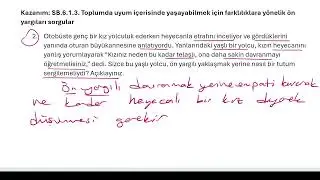 Kazanım: SB.6.1.3. Toplumda uyum içerisinde yaşayabilmek için farklılıklara yönelik ön
yargıları sorgular
2 Otobüste genç bir kız yolculuk ederken heyecanla etrafını inceliyor ve gördüklerini
yanında oturan büyükannesine anlatıyordu. Yanlarındaki yaşlı bir yolcu, kızın heyecanını
yanlış yorumlayarak "Kızınız neden bu kadar telaşlı, ona daha sakin davranmayı
öğretmelisiniz." dedi. Sizce bu yaşlı yolcu, ön yargılı yaklaşmak yerine nasıl bir tutum
sergilemeliydi? Açıklayınız.
Ön yargılı davranmak yerine empati kurarak
ne kadar heyecalı bir kız diyerek
düşünmesi gerekir